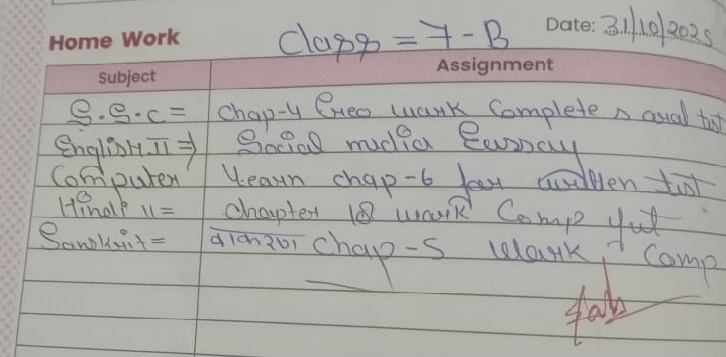 Home Work Class = 7 - B Date: 31/10/2025
Subject Assignment
S.S.c = chap-4 Exec work Complete & oral tst
English II ⇒ Social media Eassay
Computer Learn chap-6 for written tst
Hindi II = chapter 18 work Comp
Sanskrit = chap-5 work Comp